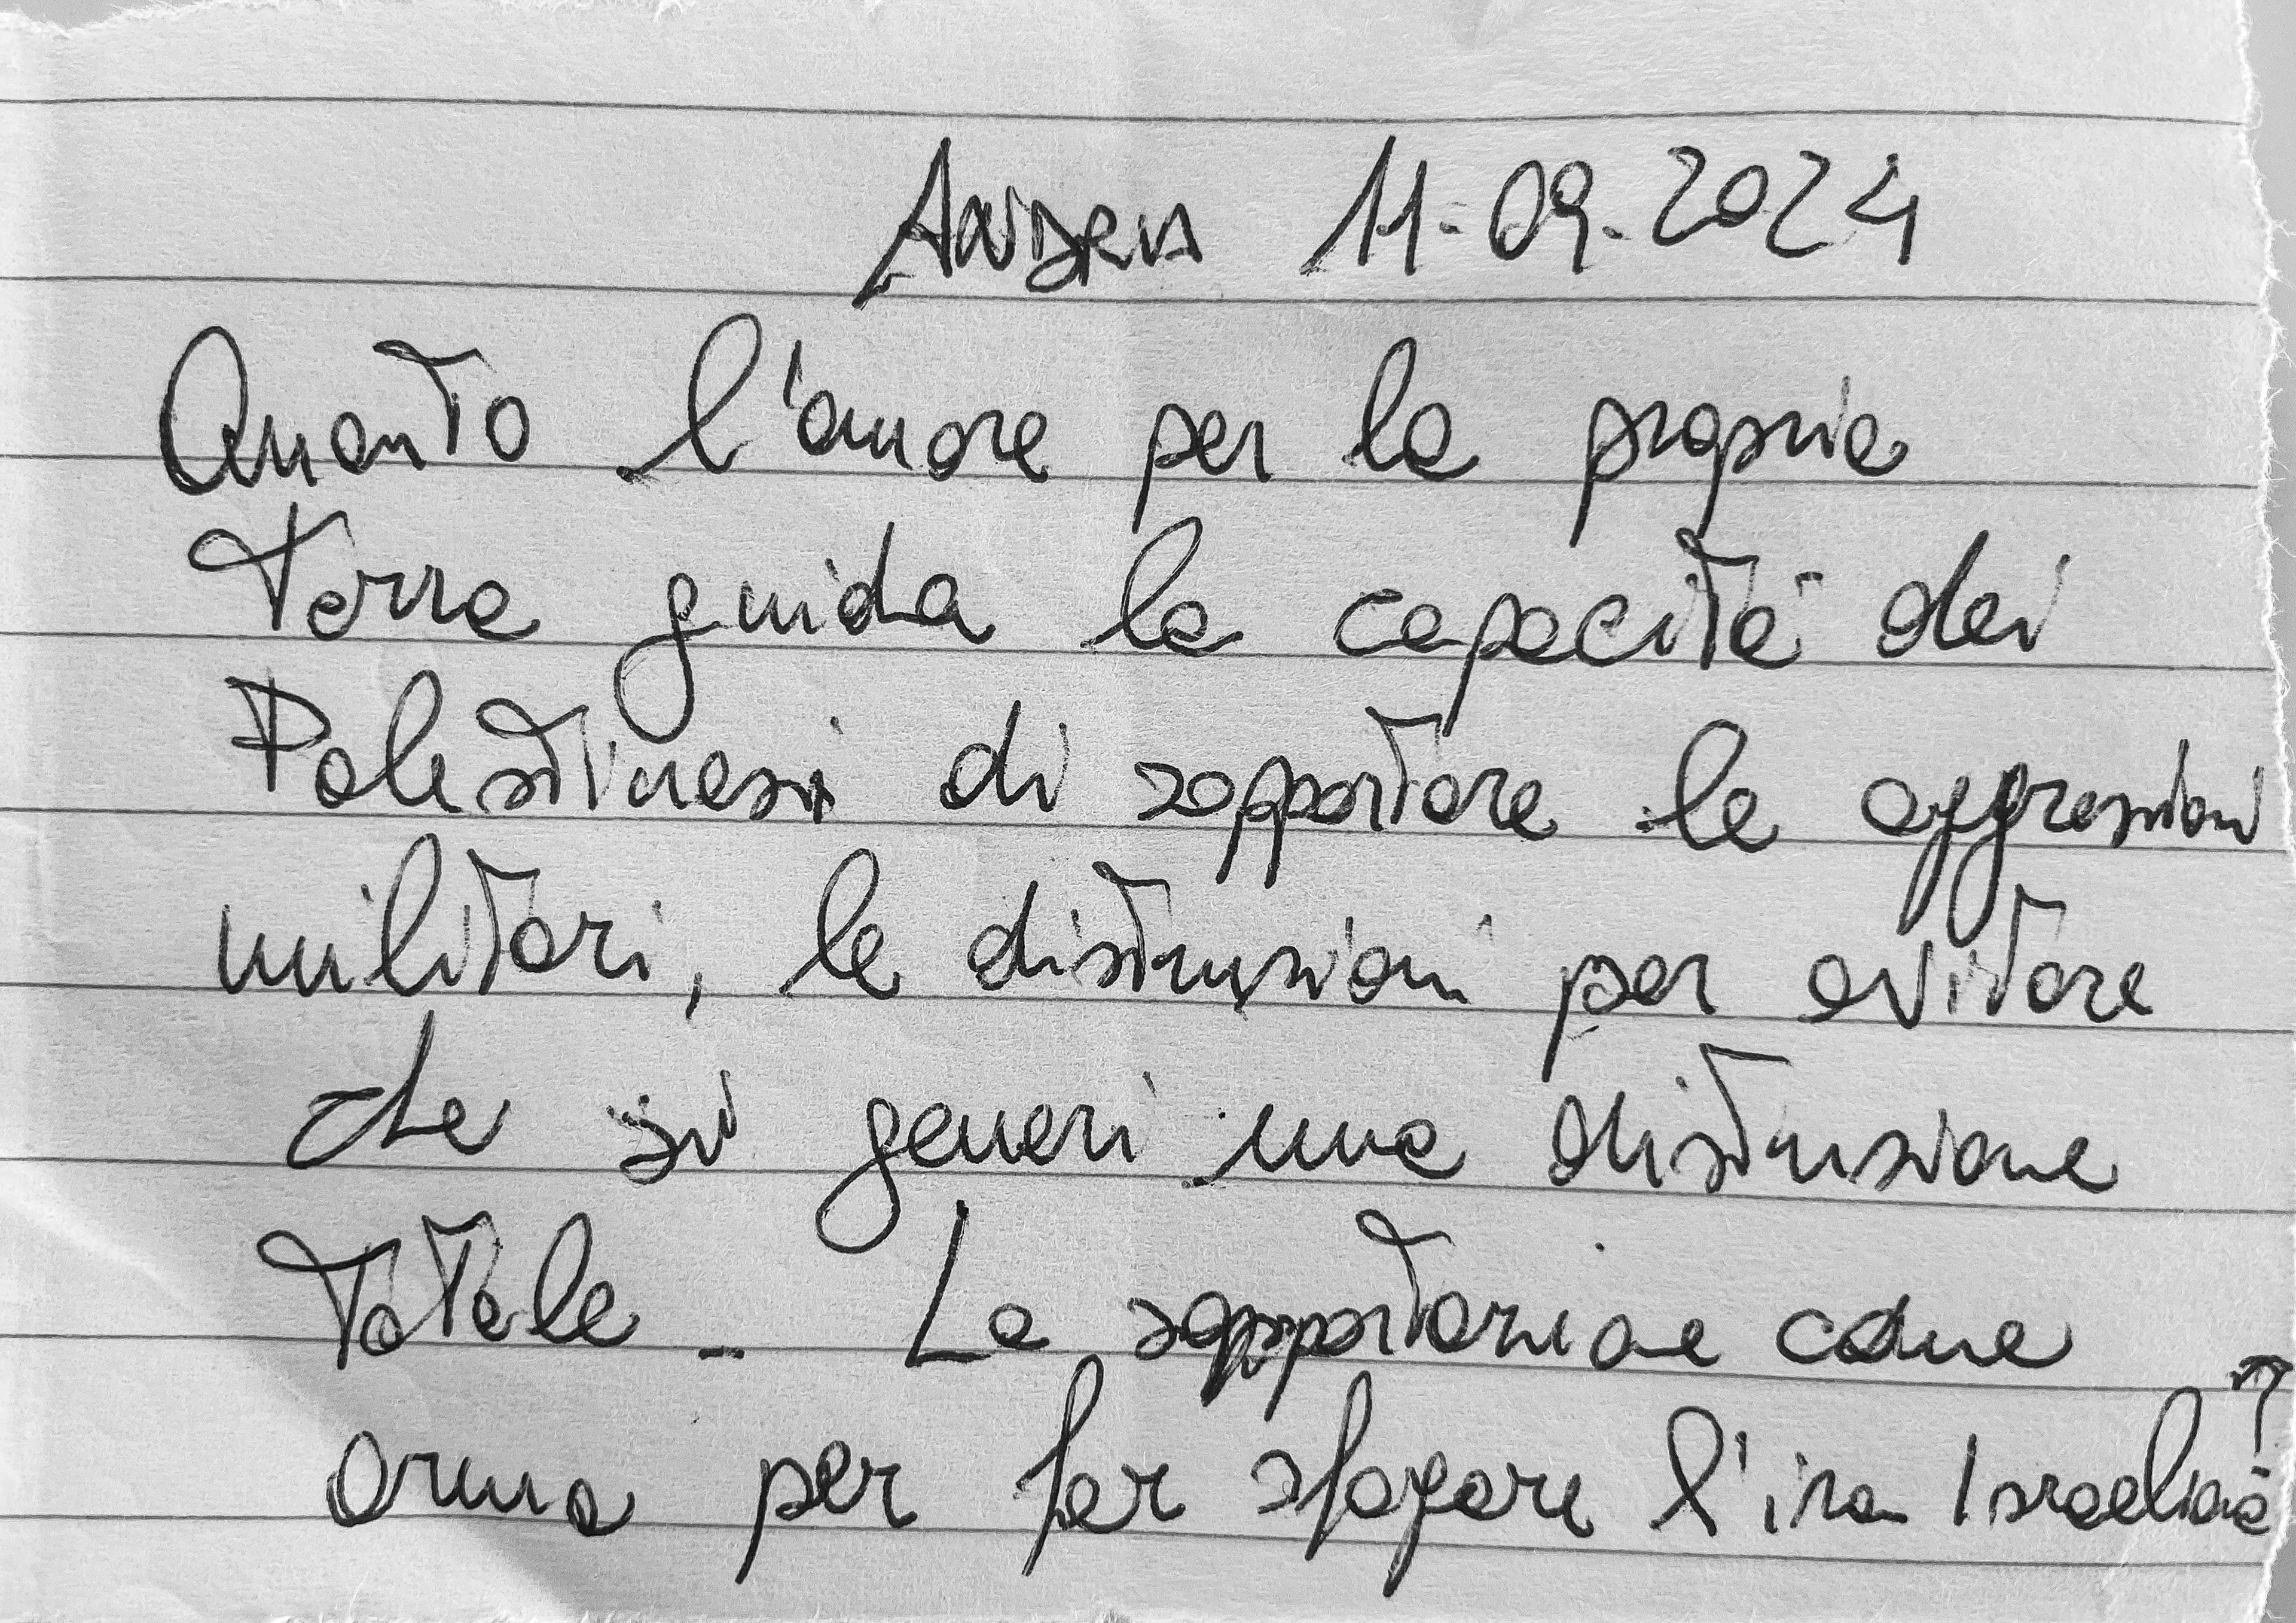 Andria 11-09-2024
Quanto l'amore per la propria
Terra guida la capacità dei
Palestinesi di sopportare le aggressioni
militari, le distruzioni per evitare
che si generi una distruzione
Totale - La sopportazione come
arma per far sfogare l'ira Israeliana?